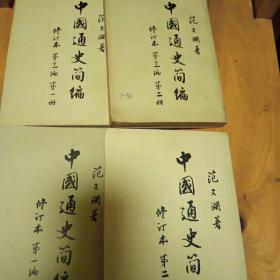 范文瀾著
中國通史简編
修订本 第三编 第一册
范文瀾著
中國通史简編
修订本 第三编 第二册
范文瀾著
中國通史简編
修订本 第一编
范文瀾著
中國通史简
修订本 第二